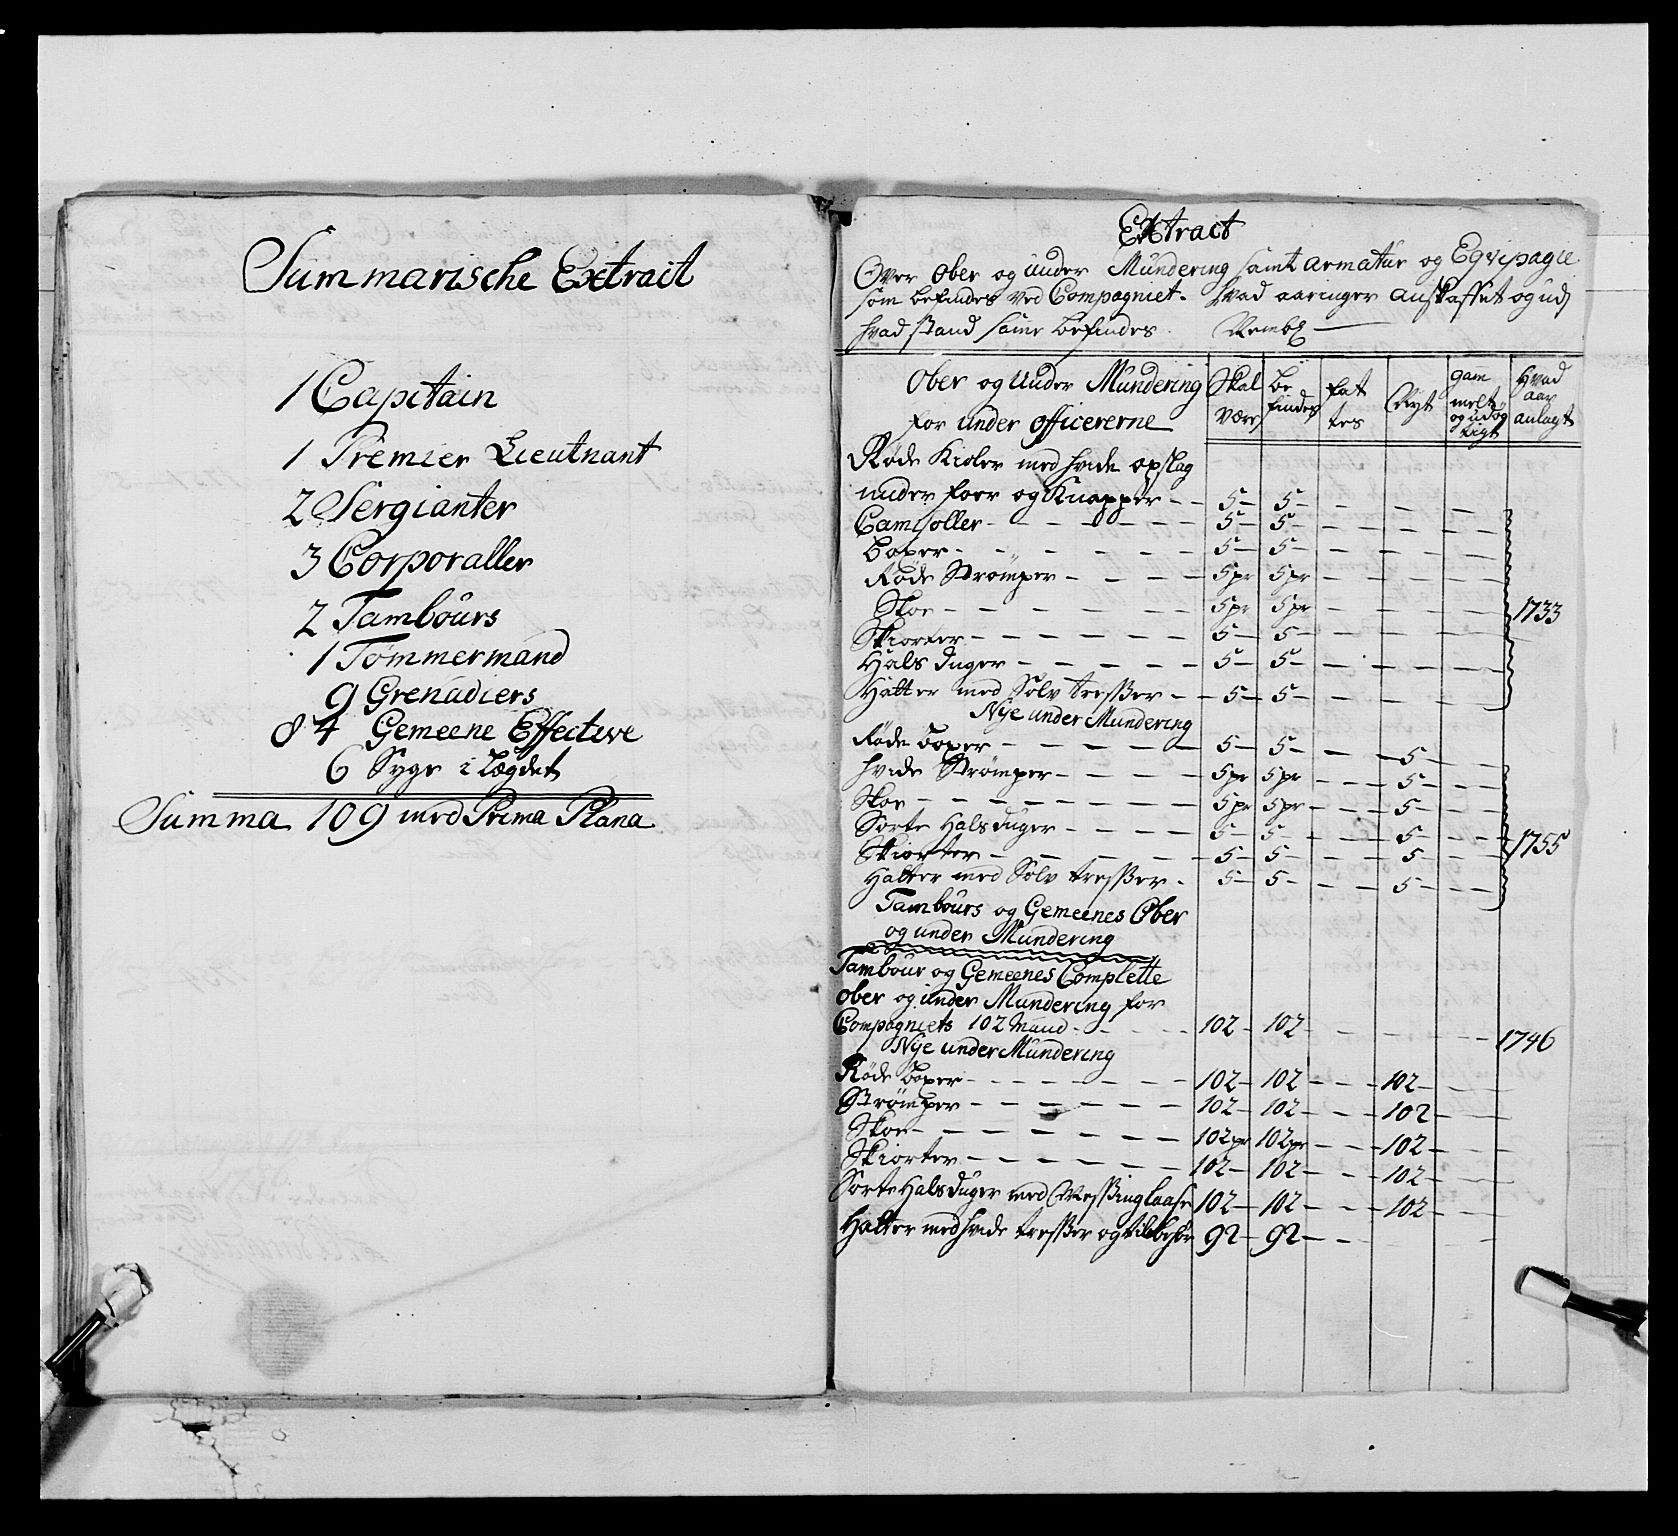 Summarische Extract
1 Capitain
1 Premier Lieutnant
2 Sergianter
3 Corporaller
2 Tambours
1 Tømmermand
9 Grenadiers
84 Gemeene Effective
6 Syge i Lægdet
Summa 109 med Prima Plana
Extract
Over Ober og Under Mundering samt armatur og Eqvipagie
som befindes ved Compagniet. hvad aaringer anskaffet og ud
hvad stand same befindes.
Ober og Under Mundering for under officererne | Skal være | be findes | fat tes | Nyt | gam melt og udøg tigt | Hvad aar anlagt
Røde Kioler med hvide opslag
under foer og Knapper - - 5 - 5 - - - -
Camisoller - - - - 5 - 5 - - - -
Boxer - - - - 5 - 5 - - - -
Røde Strømper - - - - 5 pr 5 pr - - - -
Skoe - - - - 5 pr 5 pr - - - - 1733
Skiorter - - - - 5 - 5 - - - -
Hals duger - - - - 5 - 5 - - - -
Hatter med Sølv tresßer - - 5 - 5 - - - -
Nye under Mundering
Røde boxer - - - - 5 - 5 - - - 5 - - -
hvide Strømper - - - - 5 pr 5 pr - - - 5 - - -
Skoe - - - - 5 pr 5 pr - - - 5 - - -
Sorte Hals duger - - - - 5 - 5 - - - 5 - - - 1755
Skiorter - - - - 5 - 5 - - - 5 - - -
Hatter med Sølv tresßer - 5 - 5 - - - 5 - - -
Tambours og Gemeenes Ober
og under Mundering
Tambour og Gemeenes Complette
Ober og under Mundering for
Compagniets 102 Mand - - - 102 - 102 - - - - 1746
Nye under Mundering
Røde boxer - - - - 102 - 102 - - - 102 - - -
Strømper - - - - 102 - 102 - - - 102 - - -
Skoe - - - - 102 pr 102 pr - - - 102 - - -
Skiorter - - - - 102 - 102 - - - 102 - - -
Sorte Hals duger med Mesßing laase 102 - 102 - - - 102 - - -
Hatter med hvide tresßer og tilbehør 92 - 92 - - -